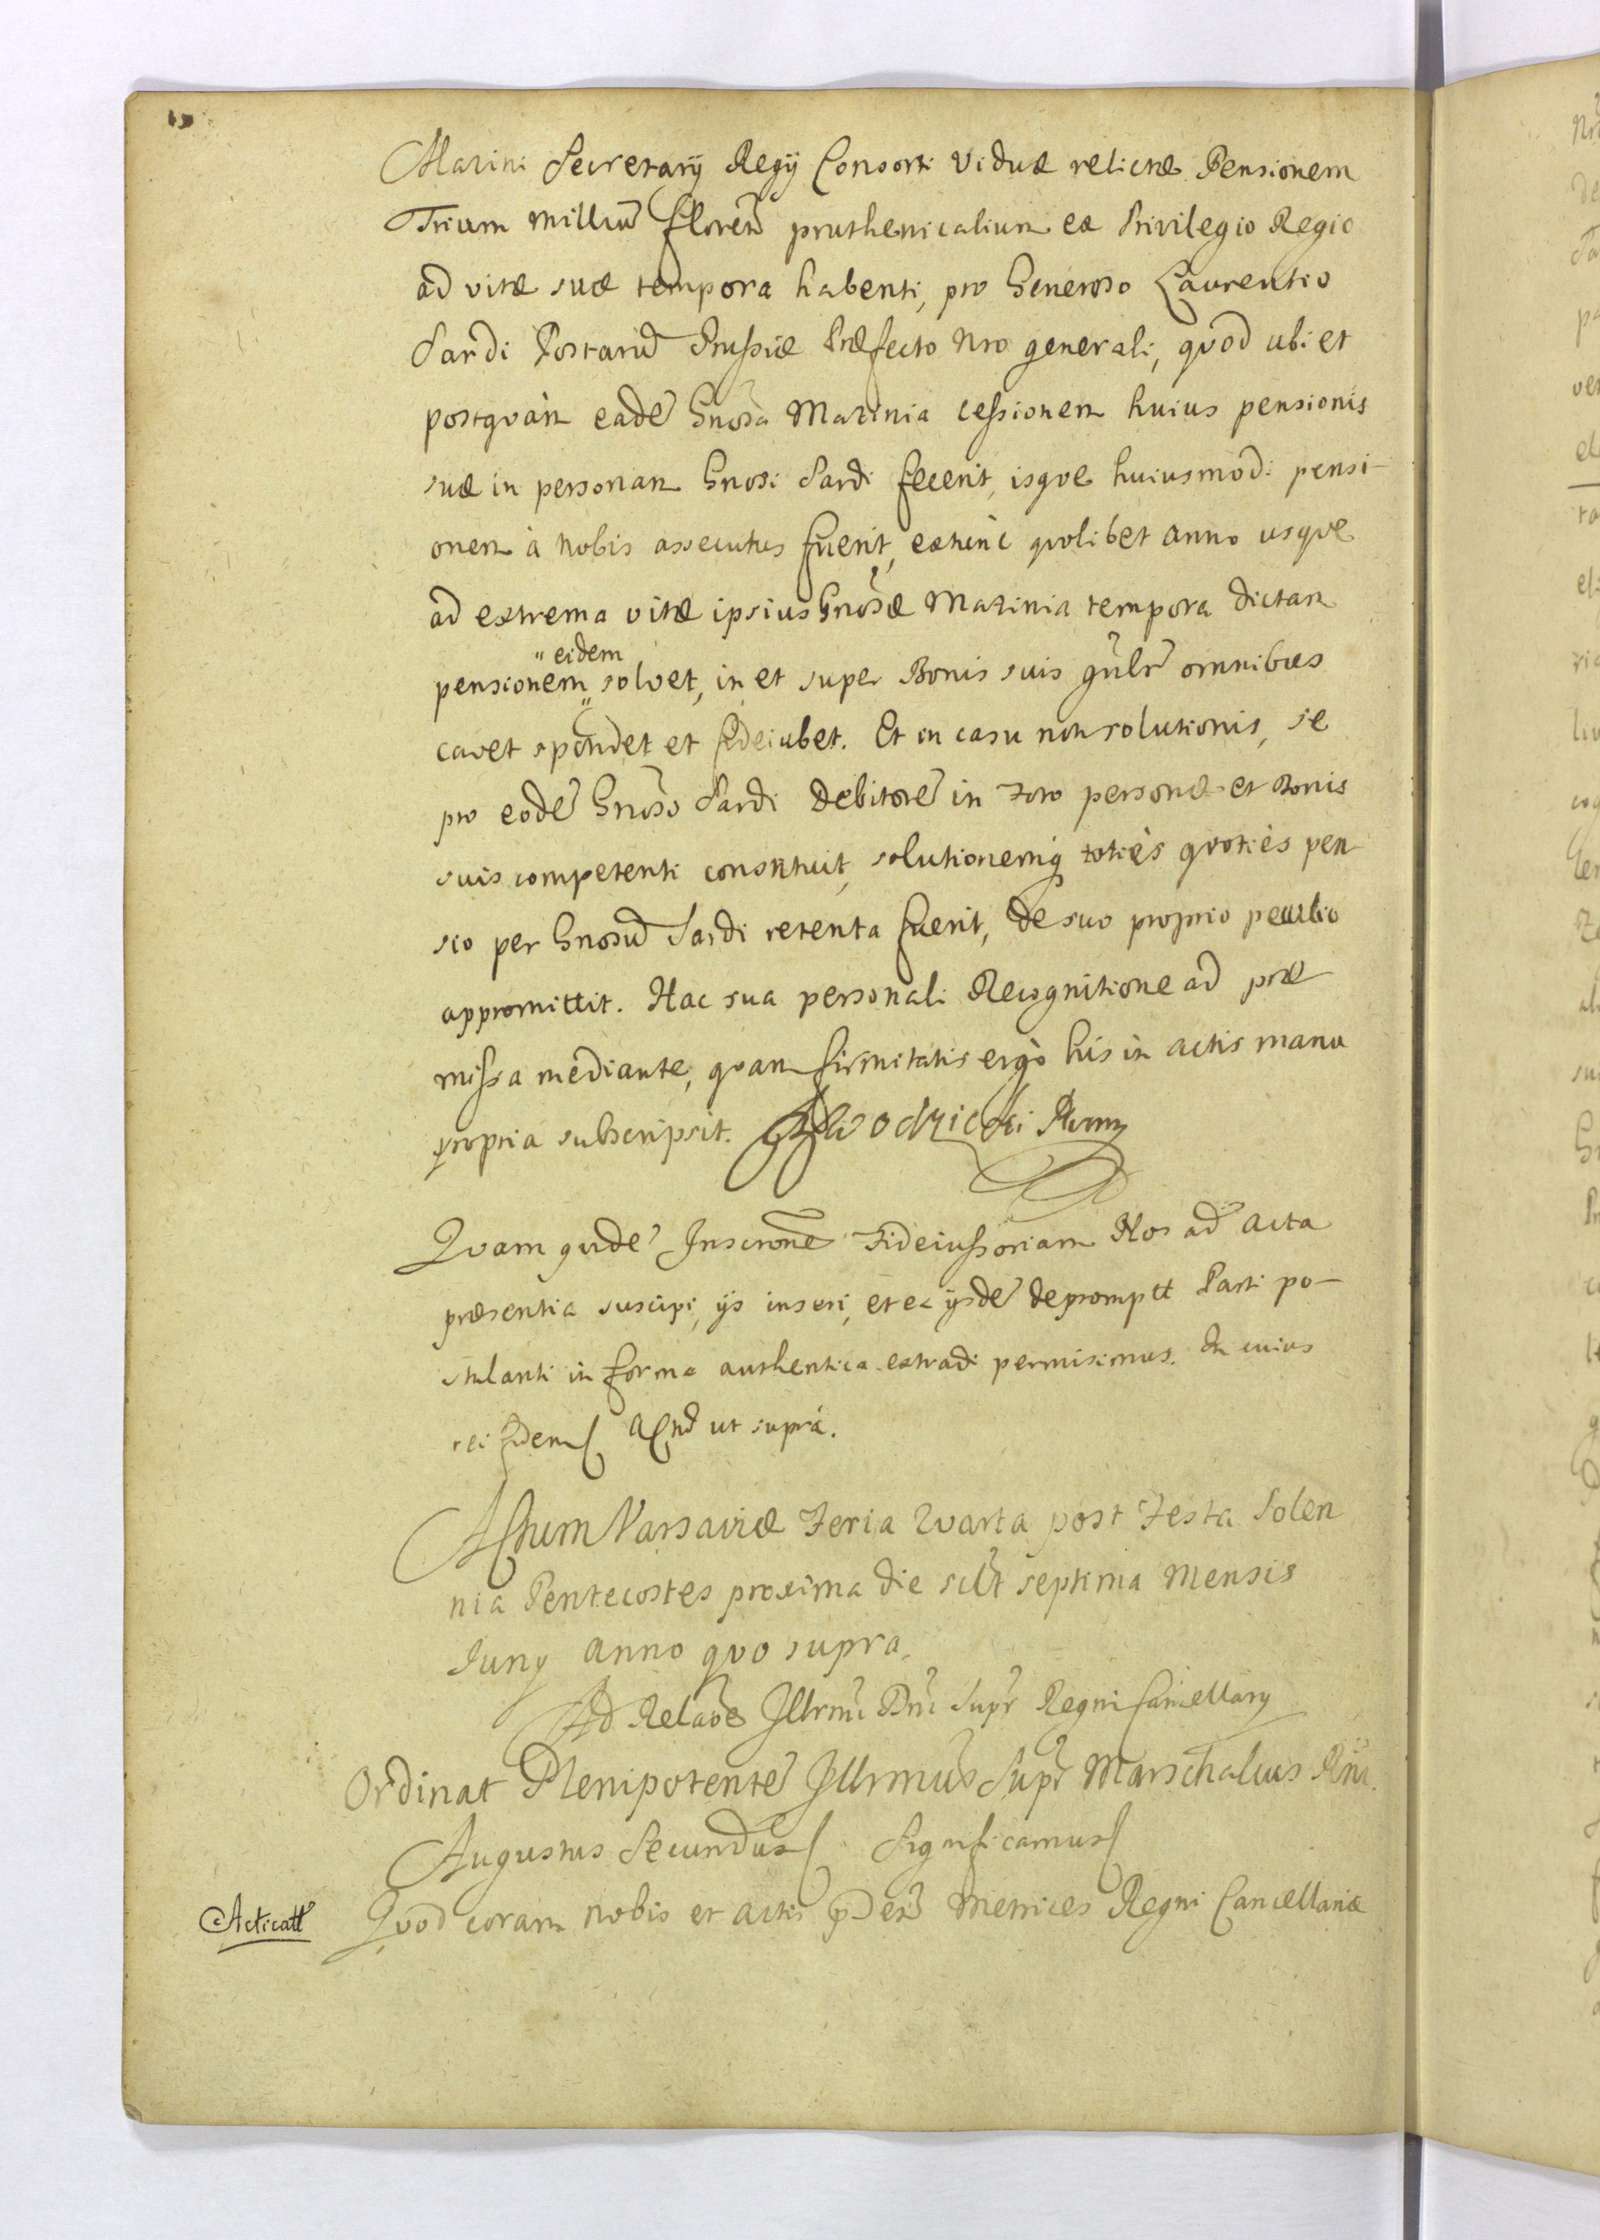 Mazini Secretarÿ Regÿ Consorti viduæ relictæ Pensionem
Trium milliũ floreñ pruthenicalium ex Privilegio Regio
ad vitæ suæ tempora habenti, pro Generoso Laurentio
Sardi Postarũ Prussiæ Præfecto nro generali, quod ubi et
postquàm eadẽ Gnosa Mazinia cessionem huius pensionis
suæ in personam Gnosi Sardi fecerit, isque huiusmodi pensi-
onem à nobis assecutus fuerit, extunc quolibet anno usque
ad extrema vitæ ipsius Gnosæ Mazinia tempora dictam
" eidem
pensionem " solvet, in et super Bonis suis gñlr omnibus
cavet spondet et fideiubet. Et in casu non solutionis, se
pro eodẽ Gnoso Sardi debitorẽ in foro personæ et Bonis
suis competenti constituit, solutionemq toties quoties pen
sio per Gnosũ Sardi retenta fuerit, de suo proprio peculio
appromittit. Hac sua personali Recognitione ad præ
missa mediante, quam firmitatis ergò his in actis manu
propria subscripsit.
Quam quidẽ Inscrõnẽ Fideiussoriam Nos ad acta
præsentia suscipi, ÿs inseri, et ex ÿsdẽ depromptt Parti po-
stulanti in forma authentica extradi permisimus. In cuius
rei fidem Actũ ut supra.
Actum Varsaviæ Feria Quarta post Festa Solen
nia Pentecostes proxima die scilt septima Mensis
Juny Anno quo supra.
Ad Relaõe Illrmi Dni Supr Regni Cancellary
Ordinat Plenipotentẽ Illrmus Supr Marschalus Rni.
Augustus Secundus Significamus
Acticatt Quod coram nobis et actis Metrices Regni Cancellariæ